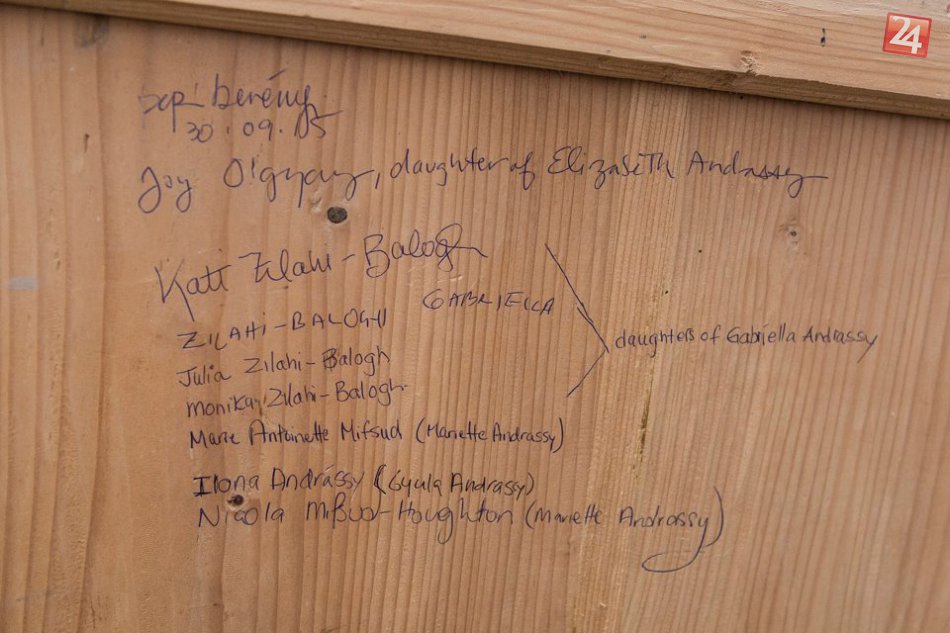 24
30.09.05
Joy Olgyay, daughter of Elizabeth Andrassy
Kati Zilahi-Balogh
ZILAHI-BALOGH GABRIELLA
Julia Zilahi-Balogh
Monika Zilahi-Balogh
daughters of Gabriella Andrassy
Marie Antoinette Mifsud (Mariette Andrassy)
Ilona Andrássy (Gyula Andrasy)
Nicola Mifsud-Houghton (Mariette Andrassy)